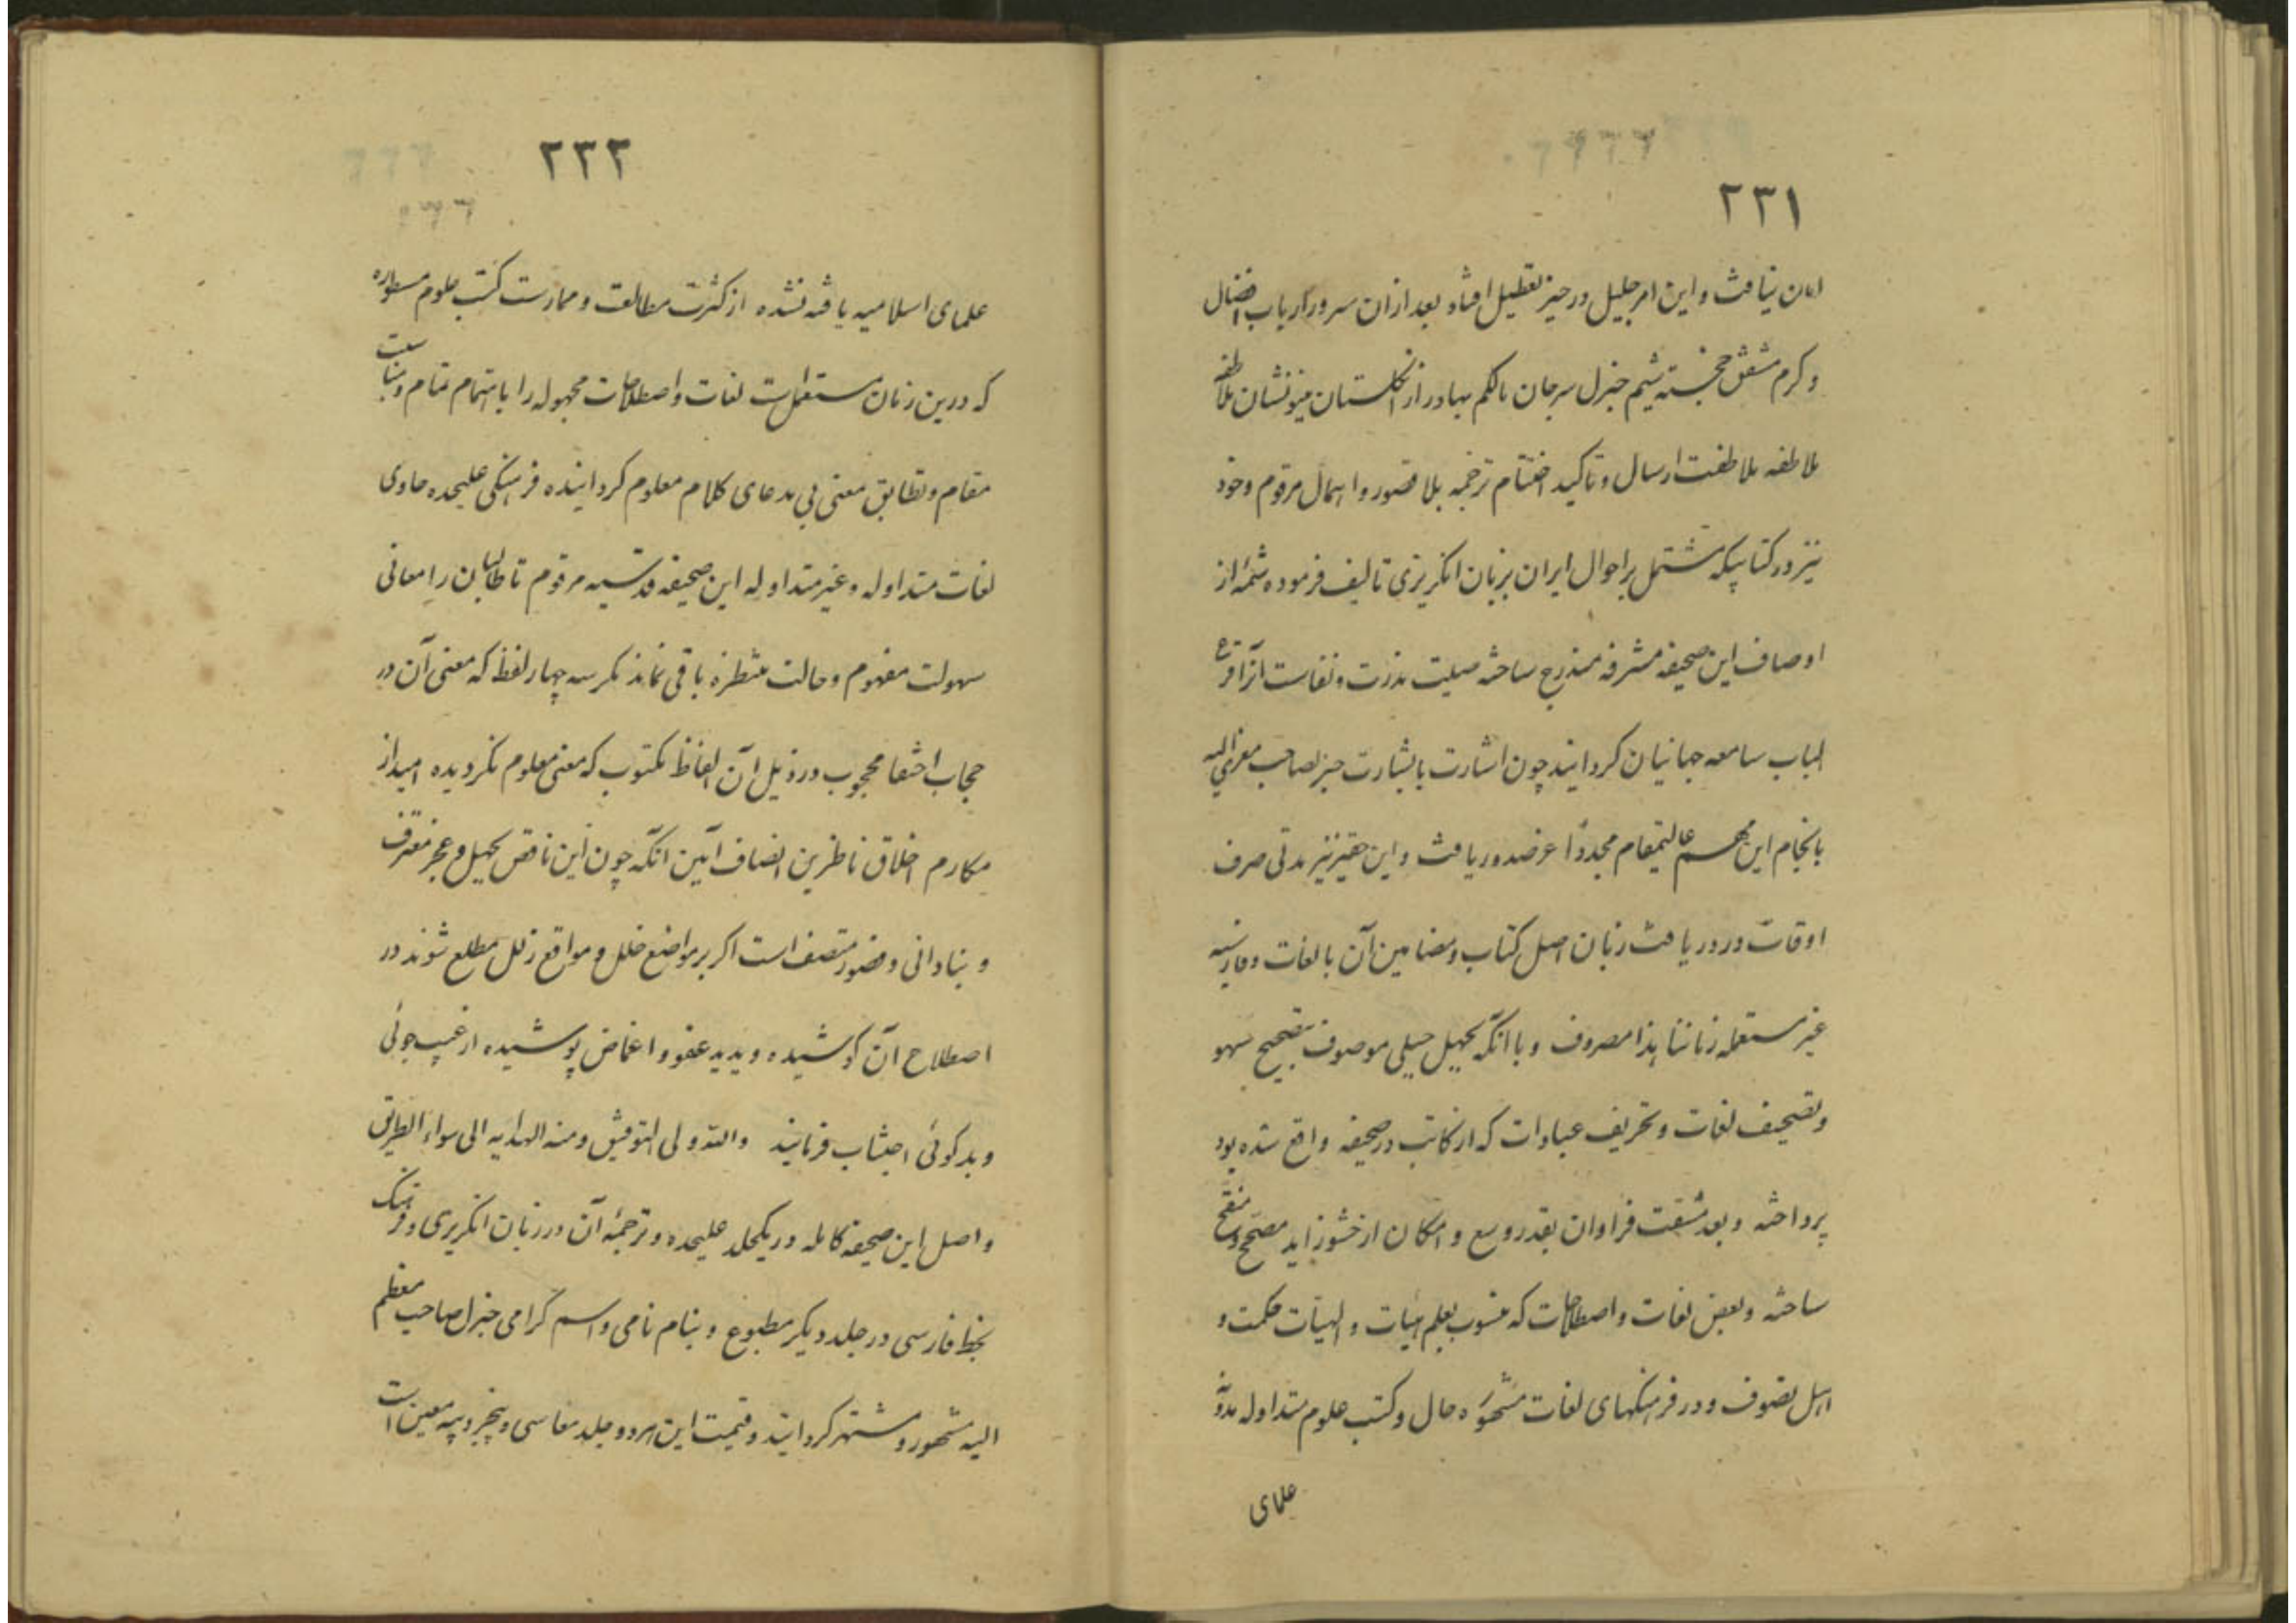 ۲۳۱
امان نیافت و این امر جلیل در حیز تعطیل افتاد بعد ازان سرور ارباب افضال
و کرم مشفق خجسته شیم جنرل سرجان مالکم بهادر از انگلستان مینونشان ملاطفه
ملاطفه ملاطفت ارسال و تاکید اختتام ترجمه بلا قصور و اهمال مرقوم و خود
نیز در کتابیکه مشتمل بر احوال ایران بزبان انکریزی تالیف فرموده شمهٔ از
اوصاف این صحیفه مشرفه مندرج ساخته صیت ندرت و نفاست آنرا قرع
الباب سامعه جهانیان کردانید چون اشارت بابشارت جنرلصاحب معزی الیه
بانجام این مهم عالیمقام مجدداً عز صدور یافت و این حقیر نیز مدتی صرف
اوقات در دریافت زبان اصل کتاب و مضامین آن با لغات و فارسیه
غیر مستعمله زماننا هذا مصروف و با آنکه بجهل جبلی موصوف بتصحیح سهو
و تصحیف لغات و تحریف عبارات که از کاتب در صحیفه واقع شده بود
پرداخته و بعد مشقت فراوان بقدر وسع و امکان از حشو زاید مصحح و منقح
ساخته و بعض لغات و اصطلاحات که منسوب بعلم هیات و الهیات حکمت و
اهل تصوف و در فرهنکهای لغات مشحوره حال و کتب علوم متداوله مدونه
علمای
۲۳۲
علمای اسلامیه یافته نشده از کثرت مطالعت و ممارست کتب علوم مسطوره
که درین زمان مستعمل است لغات و اصطلاحات مجهوله را با اهتمام تمام و مناسبت
مقام و تطابق معنی بی مدعای کلام معلوم کردانیده فرهنکی علیحده حاوی
لغات متداوله و غیر متداوله این صحیفه قدسیه مرقوم تا طالبان را معانی
سهولت مفهوم و حالت منتظره باقی نماند مکر سه چهار لفظ که معنی آن در
حجاب اختفا محجوب و در ذیل آن الفاظ مکتوب که معنی معلوم نکردیده امید از
مکارم اخلاق ناظرین انصاف آیین آنکه چون این ناقص بجهل و عجز معترف
و بنادانی و قصور متصف است اکر بر مواضع خلل و مواقع زلل مطلع شوند در
اصطلاح آن کوشیده و بدید عفو و اغماض پوشیده از عیب جوئی
و بدکوئی اجتناب فرمایند والله ولی التوفیق و منه الهدایه الی سواء الطریق
و اصل این صحیفه کامله در یکجلد علیحده و ترجمهٔ آن در زبان انکریزی و فرهنک
بخط فارسی در جلد دیکر مطبوع و بنام نامی و اسم کرامی جنرل صاحب معظم
الیه مشهور و مشتهر کردانید و قیمت این هر دو جلد معا سی و پنچ روپیه معین است